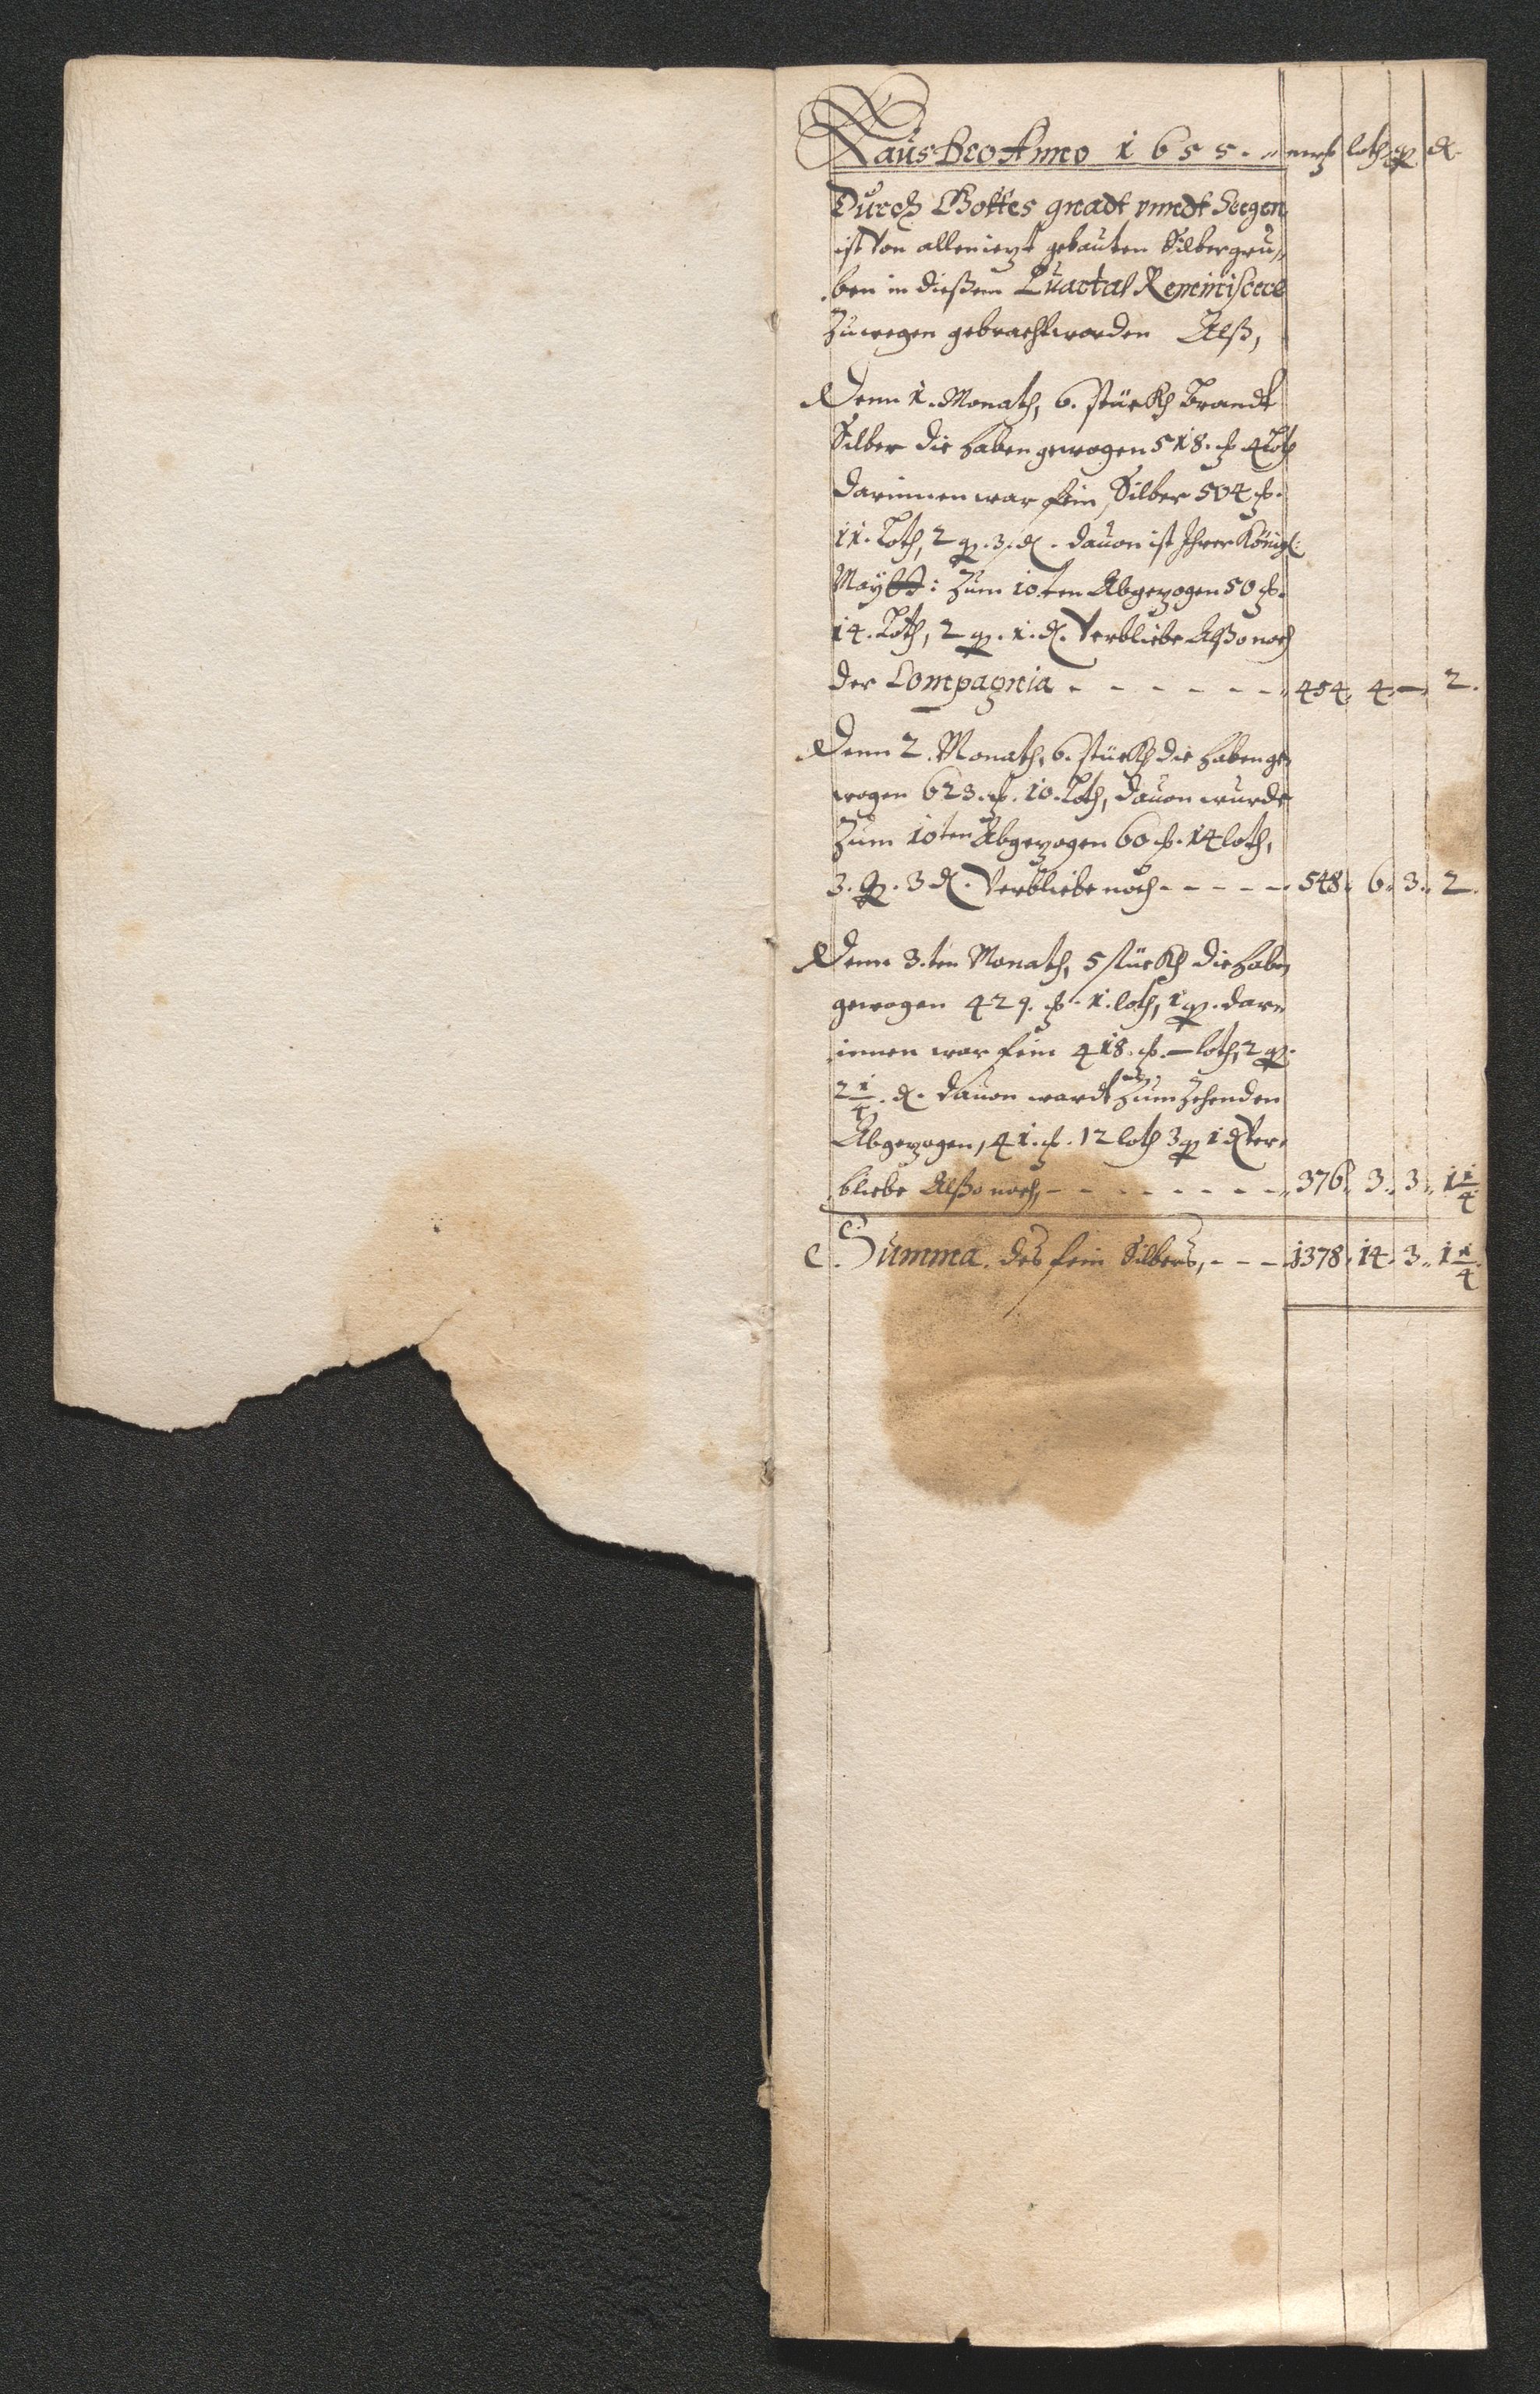 Laus Deo Anno 1655. mß loth q d
Durch Gottes gnadt vnndt Seegen
ist Von allen iezt gebauten Silbergru„
ben in dießem Quartal Reminiscere
Zuwegen gebracht worden Alß,
Denn 1. Monath, 6. stückh Brandt
Silber die haben gewogen 518. ß 4 Loth
darinnen war fein Silber 504 ß.
11. Loth, 2 q. 3. d. dauon ist Ihrer Königl:
Maytt: Zum 10ten Abgezogen 50 ß.
14. Loth, 2 q. 1. d. Verbliebe Alßo noch
der Compagnia - - - - - - - 454. 4. — 2.
Denn 2. Monath, 6. stückh die haben ge„
wogen 623. ß. 10. Loth, dauon wurde
Zum 10ten Abgezogen 60 ß. 14 loth,
3. q. 3 d. Verbliebe noch - - - - - 548. 6. 3. 2.
Denn 3.ten Monath, 5 stückh die haben
gewogen 429. ß. 1. loth, 1 q. dar„
innen war fein 418. ß. — loth, 2 q.
2 1/4. d. dauon wardt Zum Zehenden
Abgezogen, 41. ß. 12 loth 3 q 1 d Ver„
bliebe Alßo noch, - - - - - - - - 376. 3. 3. 1 1/4
Summa des fein Silbers, - - - 1378. 14. 3. 1 1/4